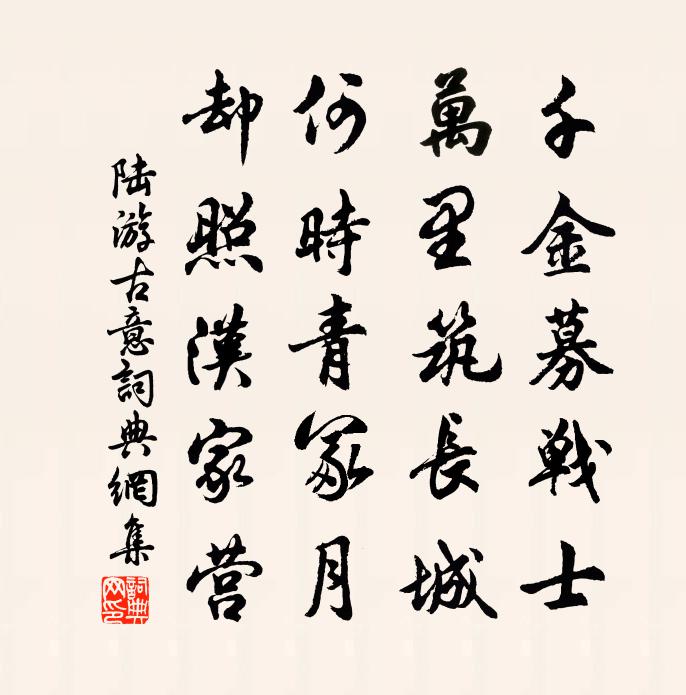 千金募戰士
萬里筑長城
何時青冢月
却照漢家营
陆游古意詞典網集
詞典網印